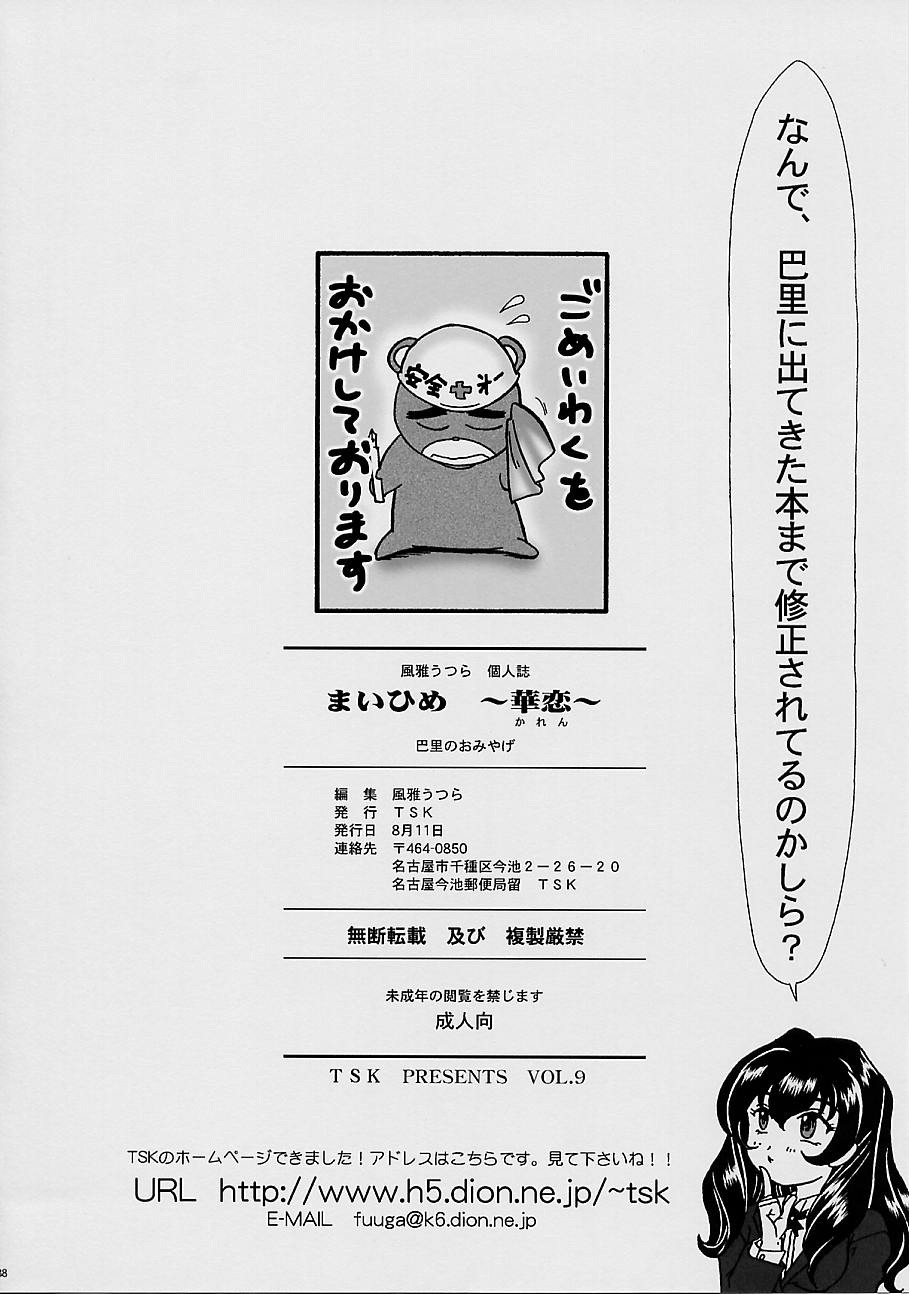 なんで、巴里に出てきた本まで修正されてるのかしら?
ごめいわくを
おかけしております
安全+第一
風雅うつら 個人誌
まいひめ ～華恋～
かれん
巴里のおみやげ
編 集 風雅うつら
発 行 TSK
発行日 8月11日
連絡先 〒464-0850
名古屋市千種区今池2-26-20
名古屋今池郵便局留 TSK
無断転載 及び 複製厳禁
未成年の閲覧を禁じます
成人向
TSK PRESENTS VOL.9
TSKのホームページできました!アドレスはこちらです。見て下さいね!!
URL http://www.h5.dion.ne.jp/~tsk
E-MAIL fuuga@k6.dion.ne.jp